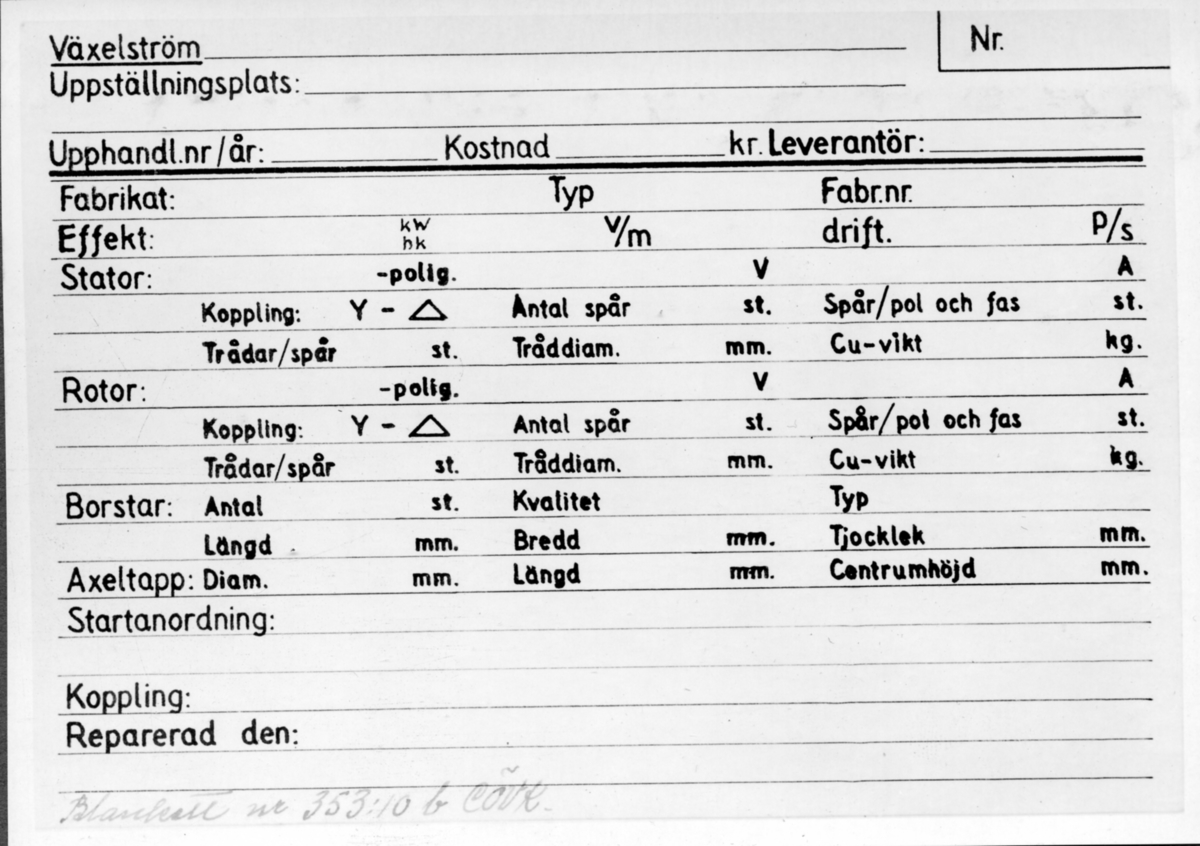 Växelström Nr.
Uppställningsplats:
Upphandl.nr/år: Kostnad kr. Leverantör:
Fabrikat: Typ Fabr.nr.
Effekt: kW hk V/m drift. P/s
Stator: -polig. V A
Koppling: Y - △ Antal spår st. Spår/pol och fas st.
Trådar/spår st. Tråddiam. mm. Cu-vikt kg.
Rotor: -polig. V A
Koppling: Y - △ Antal spår st. Spår/pol och fas st.
Trådar/spår st. Tråddiam. mm. Cu-vikt kg.
Borstar: Antal st. Kvalitet Typ
Längd mm. Bredd mm. Tjocklek mm.
Axeltapp: Diam. mm. Längd mm. Centrumhöjd mm.
Startanordning:
Koppling:
Reparerad den:
Blankett nr 353:10 b CÖVK.